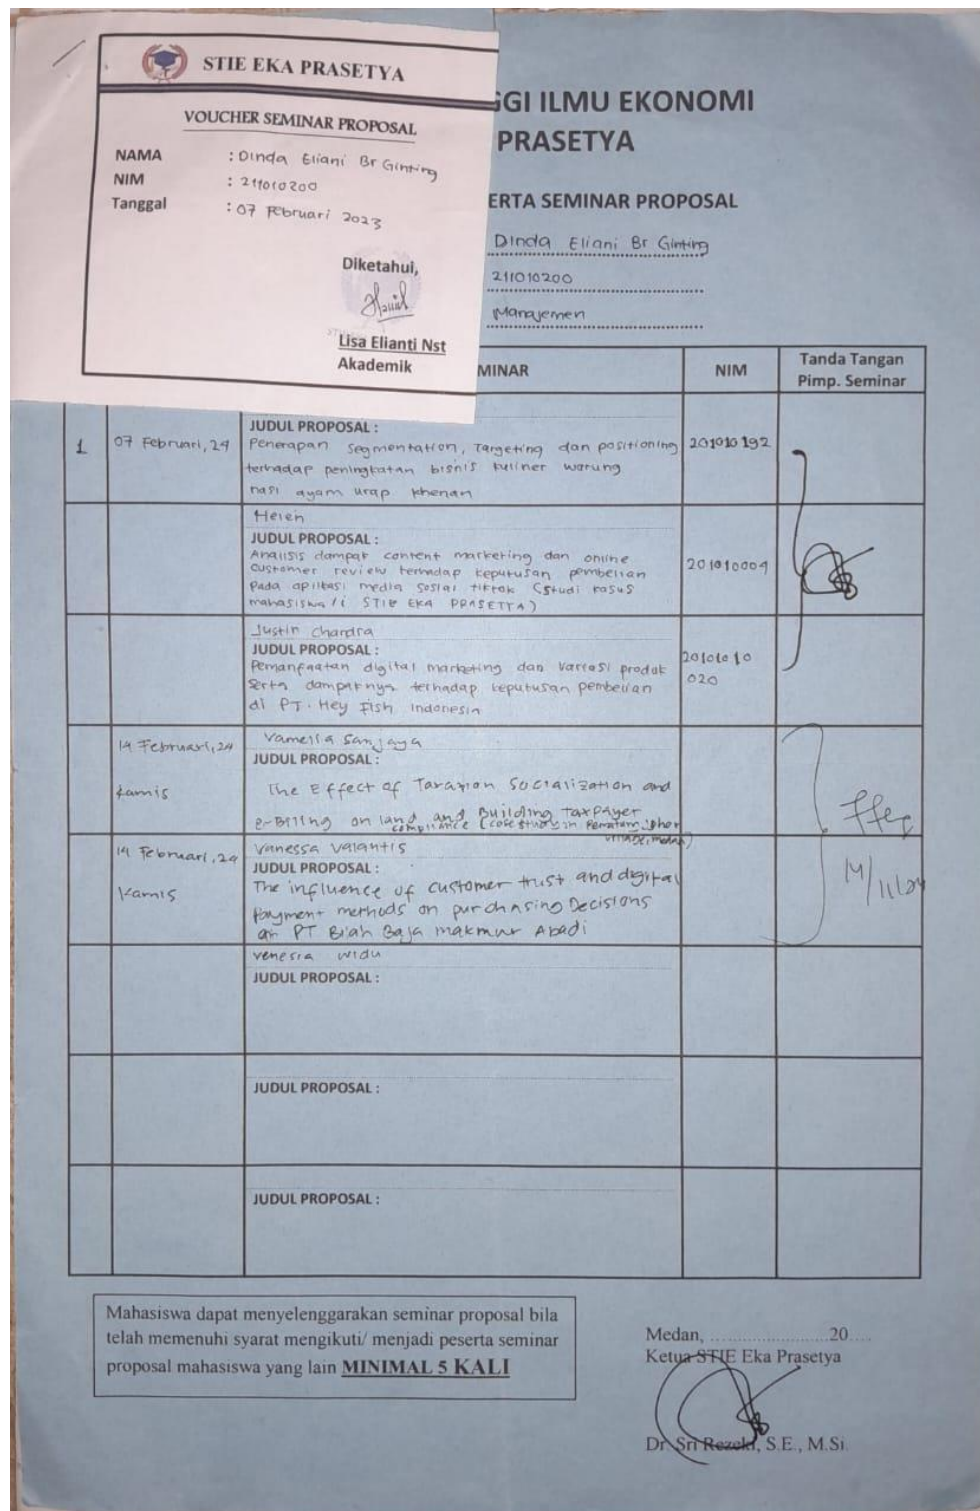 STIE EKA PRASETYA
VOUCHER SEMINAR PROPOSAL
NAMA : Dinda Eliani Br Ginting
NIM : 211010200
Tanggal : 07 Februari 2023
Diketahui,
Lisa Elianti Nst
Akademik
GGI ILMU EKONOMI
PRASETYA
ERTA SEMINAR PROPOSAL
Dinda Eliani Br Ginting
211010200
Manajemen
MINAR NIM Tanda Tangan
Pimp. Seminar
JUDUL PROPOSAL :
1 07 Februari, 24 Penerapan Segmentation, Targeting dan positioning 201010192
terhadap peningkatan bisnis kuliner warung
nasi ayam urap khenan
Helen
JUDUL PROPOSAL :
Analisis dampak content marketing dan online
customer review terhadap keputusan pembelian 201010004
pada aplikasi media sosial tiktok (studi kasus
mahasiswa/i STIE EKA PRASETYA)
Justin Chandra
JUDUL PROPOSAL :
Pemanfaatan digital marketing dan variasi produk 20101010
serta dampaknya terhadap keputusan pembelian 020
di PT. Hey Fish Indonesia
14 Februari, 24 Vamella Sanjaya
JUDUL PROPOSAL :
Kamis The Effect of Taxation Socialization and
e-Billing on land and Building taxpayer
compliance (case study in Johor
village, medan)
14 Februari, 24 Vanessa Valantis
JUDUL PROPOSAL :
Kamis The influence of customer trust and digital
Payment methods on purchasing Decisions
PT Baja makmur Abadi
14/11/24
venesia widu
JUDUL PROPOSAL :
JUDUL PROPOSAL :
JUDUL PROPOSAL :
Mahasiswa dapat menyelenggarakan seminar proposal bila
telah memenuhi syarat mengikuti/ menjadi peserta seminar
proposal mahasiswa yang lain MINIMAL 5 KALI
Medan, ........................20....
Ketua STIE Eka Prasetya
Dr. Sri Rezeki, S.E., M.Si.